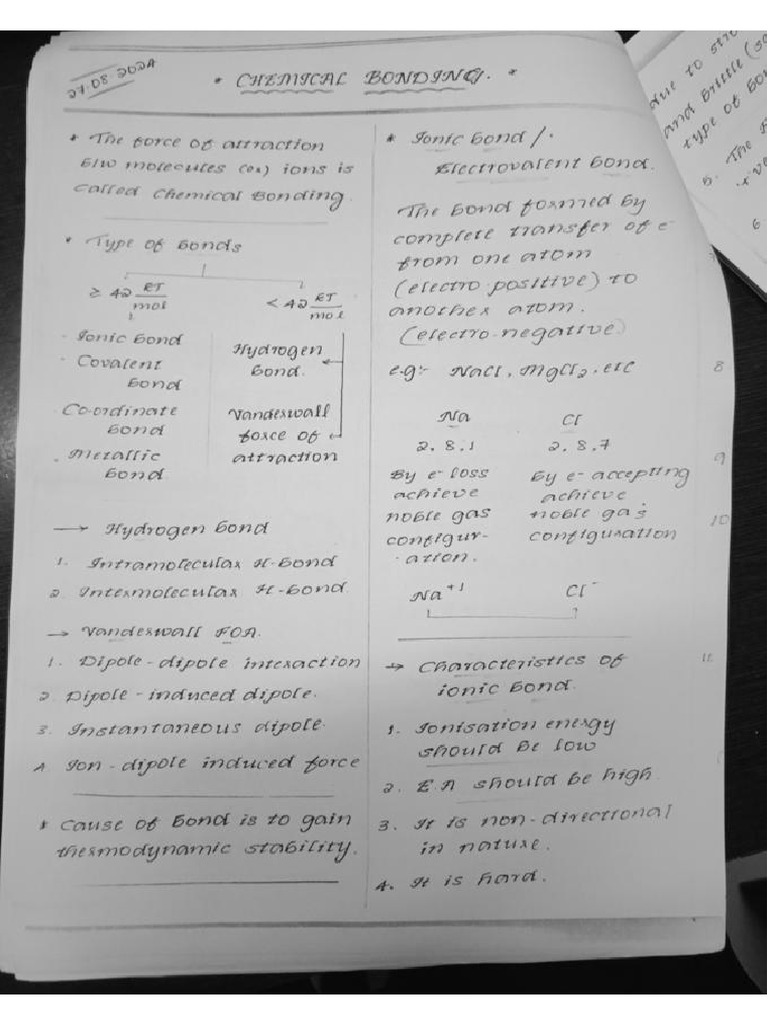 27.08.2024
* CHEMICAL BONDING. *
* The force of attraction
b/w molecules (or) ions is
called Chemical Bonding.
* Type of bonds
≥ 42 KJ/mol
< 42 KJ/mol
- Ionic bond
- Covalent
bond
- Co-ordinate
bond
- Metallic
bond
Hydrogen
bond.
Vanderwall
force of
attraction
→ Hydrogen bond
1. Intramolecular H-bond
2. Intermolecular H-bond.
→ Vanderwall FOA.
1. Dipole-dipole interaction
2. Dipole-induced dipole.
3. Instantaneous dipole.
4. Ion-dipole induced force
* Cause of bond is to gain
thermodynamic stability.
* Ionic bond /.
Electrovalent bond.
The bond formed by
complete transfer of e⁻
from one atom
(electro positive) to
another atom.
(electro-negative)
e.g:- NaCl, MgCl₂, etc
Na Cl
2.8.1 2.8.7
By e⁻ loss
achieve
noble gas
configur-
ation.
By e⁻ accepting
achieve
noble gas
configuration
Na⁺¹ Cl⁻
→ Characteristics of
ionic bond.
1. Ionisation energy
should be low
2. E.A should be high.
3. It is non-directional
in nature.
4. It is hard.
due to
and brittle
type of
5. The
6
8
9
10
11